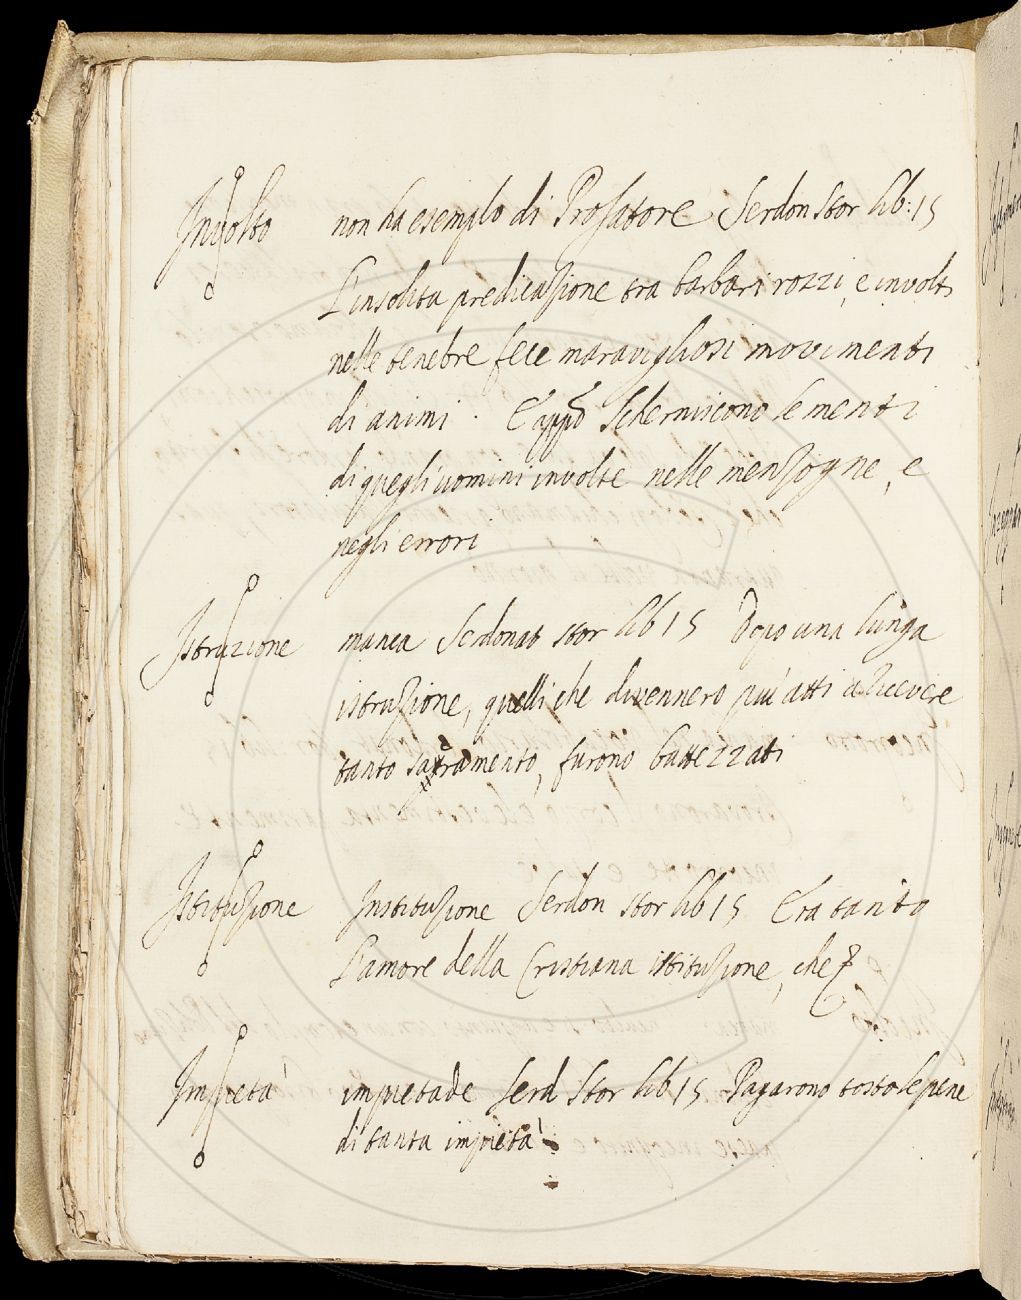 Involto non ha esempio di Prosatore Serdon Stor lib: 15
L'insolita predicazione tra barbari rozzi, e involti
nelle tenebre fece maravigliosi movimenti
di animi. E app̃o Scherniscono le menti
di quegli uomini involte nelle menzogne, e
negli errori
Istruzione manca Serdonat stor lib 15 Dopo una lunga
istruzione, quelli che divennero più atti a ricevere
tanto sacramento, furono battezzati
Istituzione Instituzione Serdon stor lib 15 Era tanto
L'amore della Cristiana istituzione, che
Impietà impietade Serd Stor lib 15 Pagarono tosto le pene
di tanta impietà